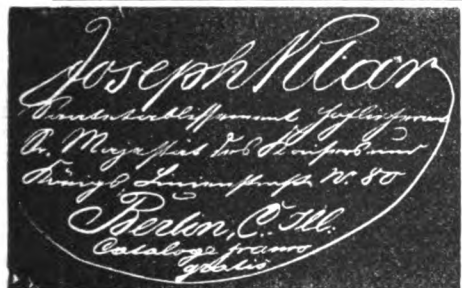 Joseph Klar
Samenetablissement, Hoflieferant
Sr. Majestät des Kaisers und
Königs Linienstraße N. 80
Berlin, C. Ill.
Cataloge franco
gratis